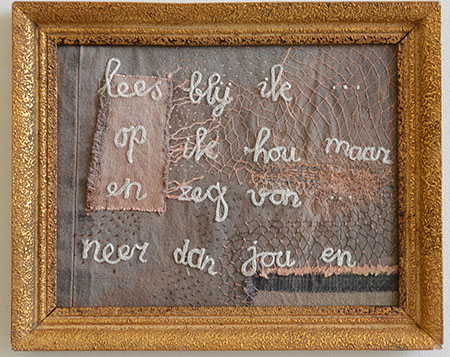 lees blij ik ...
op ik hou maar
en zeg van ...
neer dan jou en